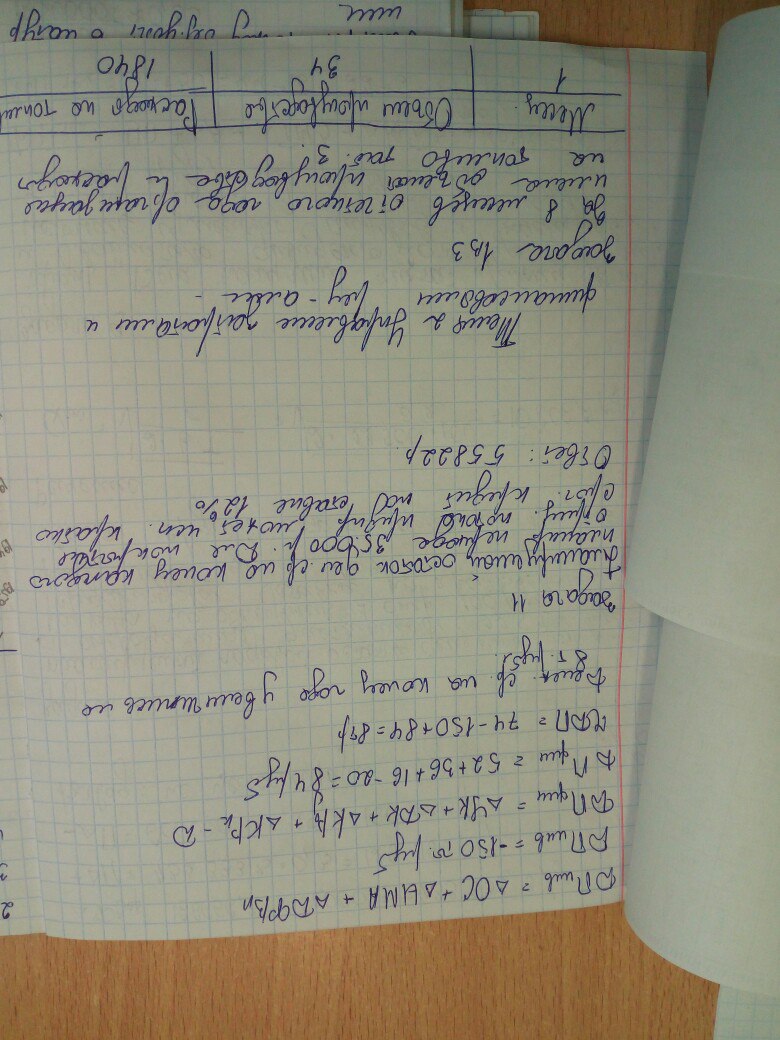 ДПинв = ΔОС + ΔНМА + ΔДФВп
ДПинв = -150 т. руб
ДПфин = ΔУК + ΔДК + ΔКРд + ΔКРк - Д
ДПфин = 52+36+16-20=84 руб
ЧДП = 74-150+84=8тр
Денеж. ср. на конец года увеличились на
8 т. рубл.
Задача 11
Планируемый остаток ден ср на конец каждого
планир периода 35000 р. Для покрытия
отриц. потока предпр может исп. кратко
сроч. кредит по ставке 12%
Ответ: 55822р.
Тема 2 Управление затратами и
финансовыми рез-ами -
Задача 1в3
За 8 месяцев отчетного года организация
имела объемы производства и расходы
на топливо таб. 3.
Месяц Объем производства Расходы на топлив
1 34 1840
в натур